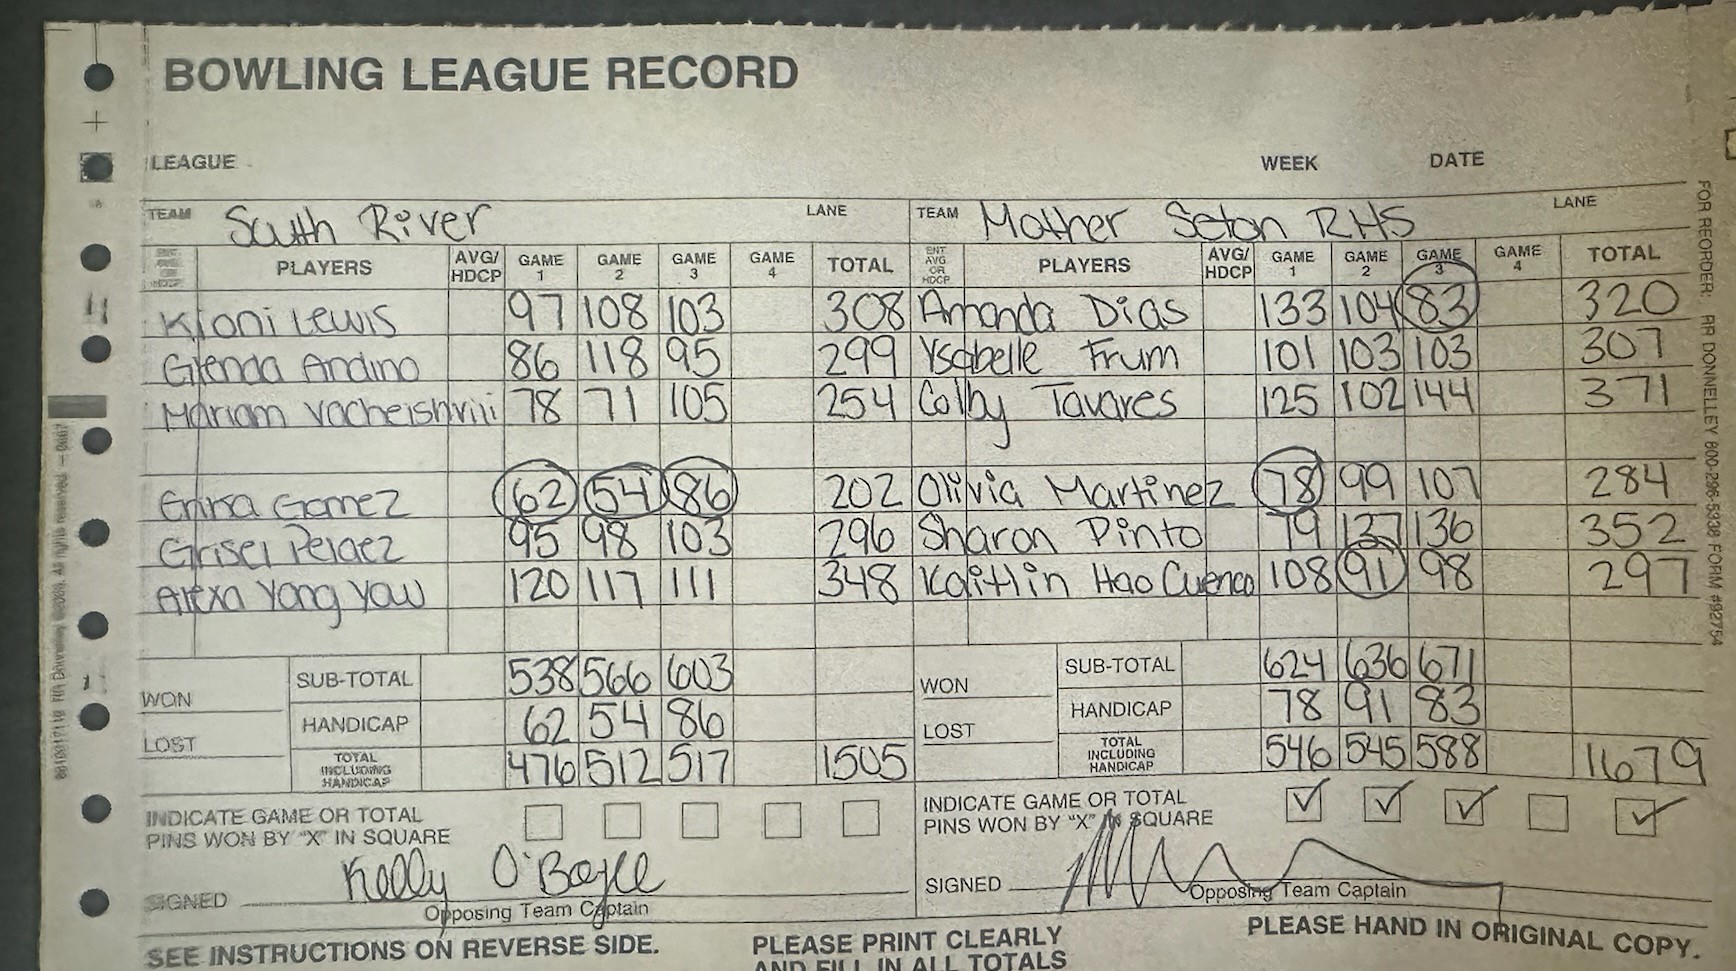 BOWLING LEAGUE RECORD
LEAGUE WEEK DATE
TEAM South River LANE TEAM Mother Seton RHS LANE
PLAYERS AVG/ HDCP GAME 1 GAME 2 GAME 3 GAME 4 TOTAL ENT AVG OR HDCP PLAYERS AVG/ HDCP GAME 1 GAME 2 GAME 3 GAME 4 TOTAL
Kioni Lewis 97 108 103 308 Amanda Dias 133 104 83 320
Glenda Andino 86 118 95 299 Ysabelle Frum 101 103 103 307
Mariam Vacheishvili 78 71 105 254 Colby Tavares 125 102 144 371
Erika Gomez 62 54 86 202 Olivia Martinez 78 99 107 284
Grisel Pelaez 95 98 103 296 Sharon Pinto 79 137 136 352
Alexa Yong Yow 120 117 111 348 Kaitlin Hao Cuenca 108 91 98 297
WON SUB-TOTAL 538 566 603 WON SUB-TOTAL 624 636 671
LOST HANDICAP 62 54 86 LOST HANDICAP 78 91 83
TOTAL INCLUDING HANDICAP 476 512 517 1505 TOTAL INCLUDING HANDICAP 546 545 588 1679
INDICATE GAME OR TOTAL PINS WON BY "X" IN SQUARE INDICATE GAME OR TOTAL PINS WON BY "X" IN SQUARE
SIGNED Kelly O'Boyle SIGNED
Opposing Team Captain Opposing Team Captain
SEE INSTRUCTIONS ON REVERSE SIDE. PLEASE PRINT CLEARLY AND FILL IN ALL TOTALS PLEASE HAND IN ORIGINAL COPY.
FOR REORDER: RR DONNELLEY 800-296-5338 FORM #92754